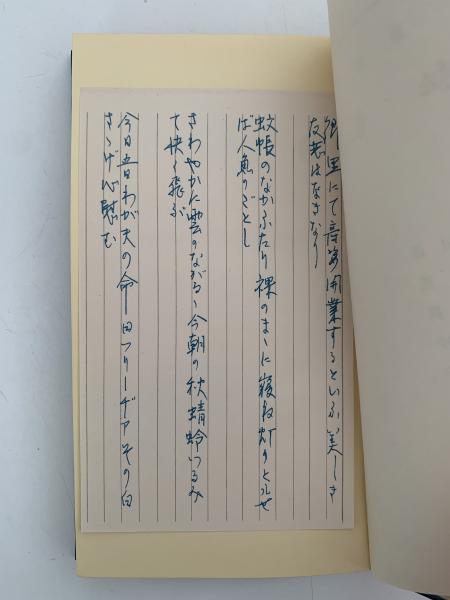 郷里にて 開業するといふ美しき
友恙はなきなり
蚊帳のなかふたり裸のまゝに寝ね灯りともせ
ば人魚のごとし
さわやかに雲のながるゝ今朝の秋蜻蛉つるみ
て快く飛ぶ
今日五日わが夫の命日フリーヂアその白
さゝげ心慰む